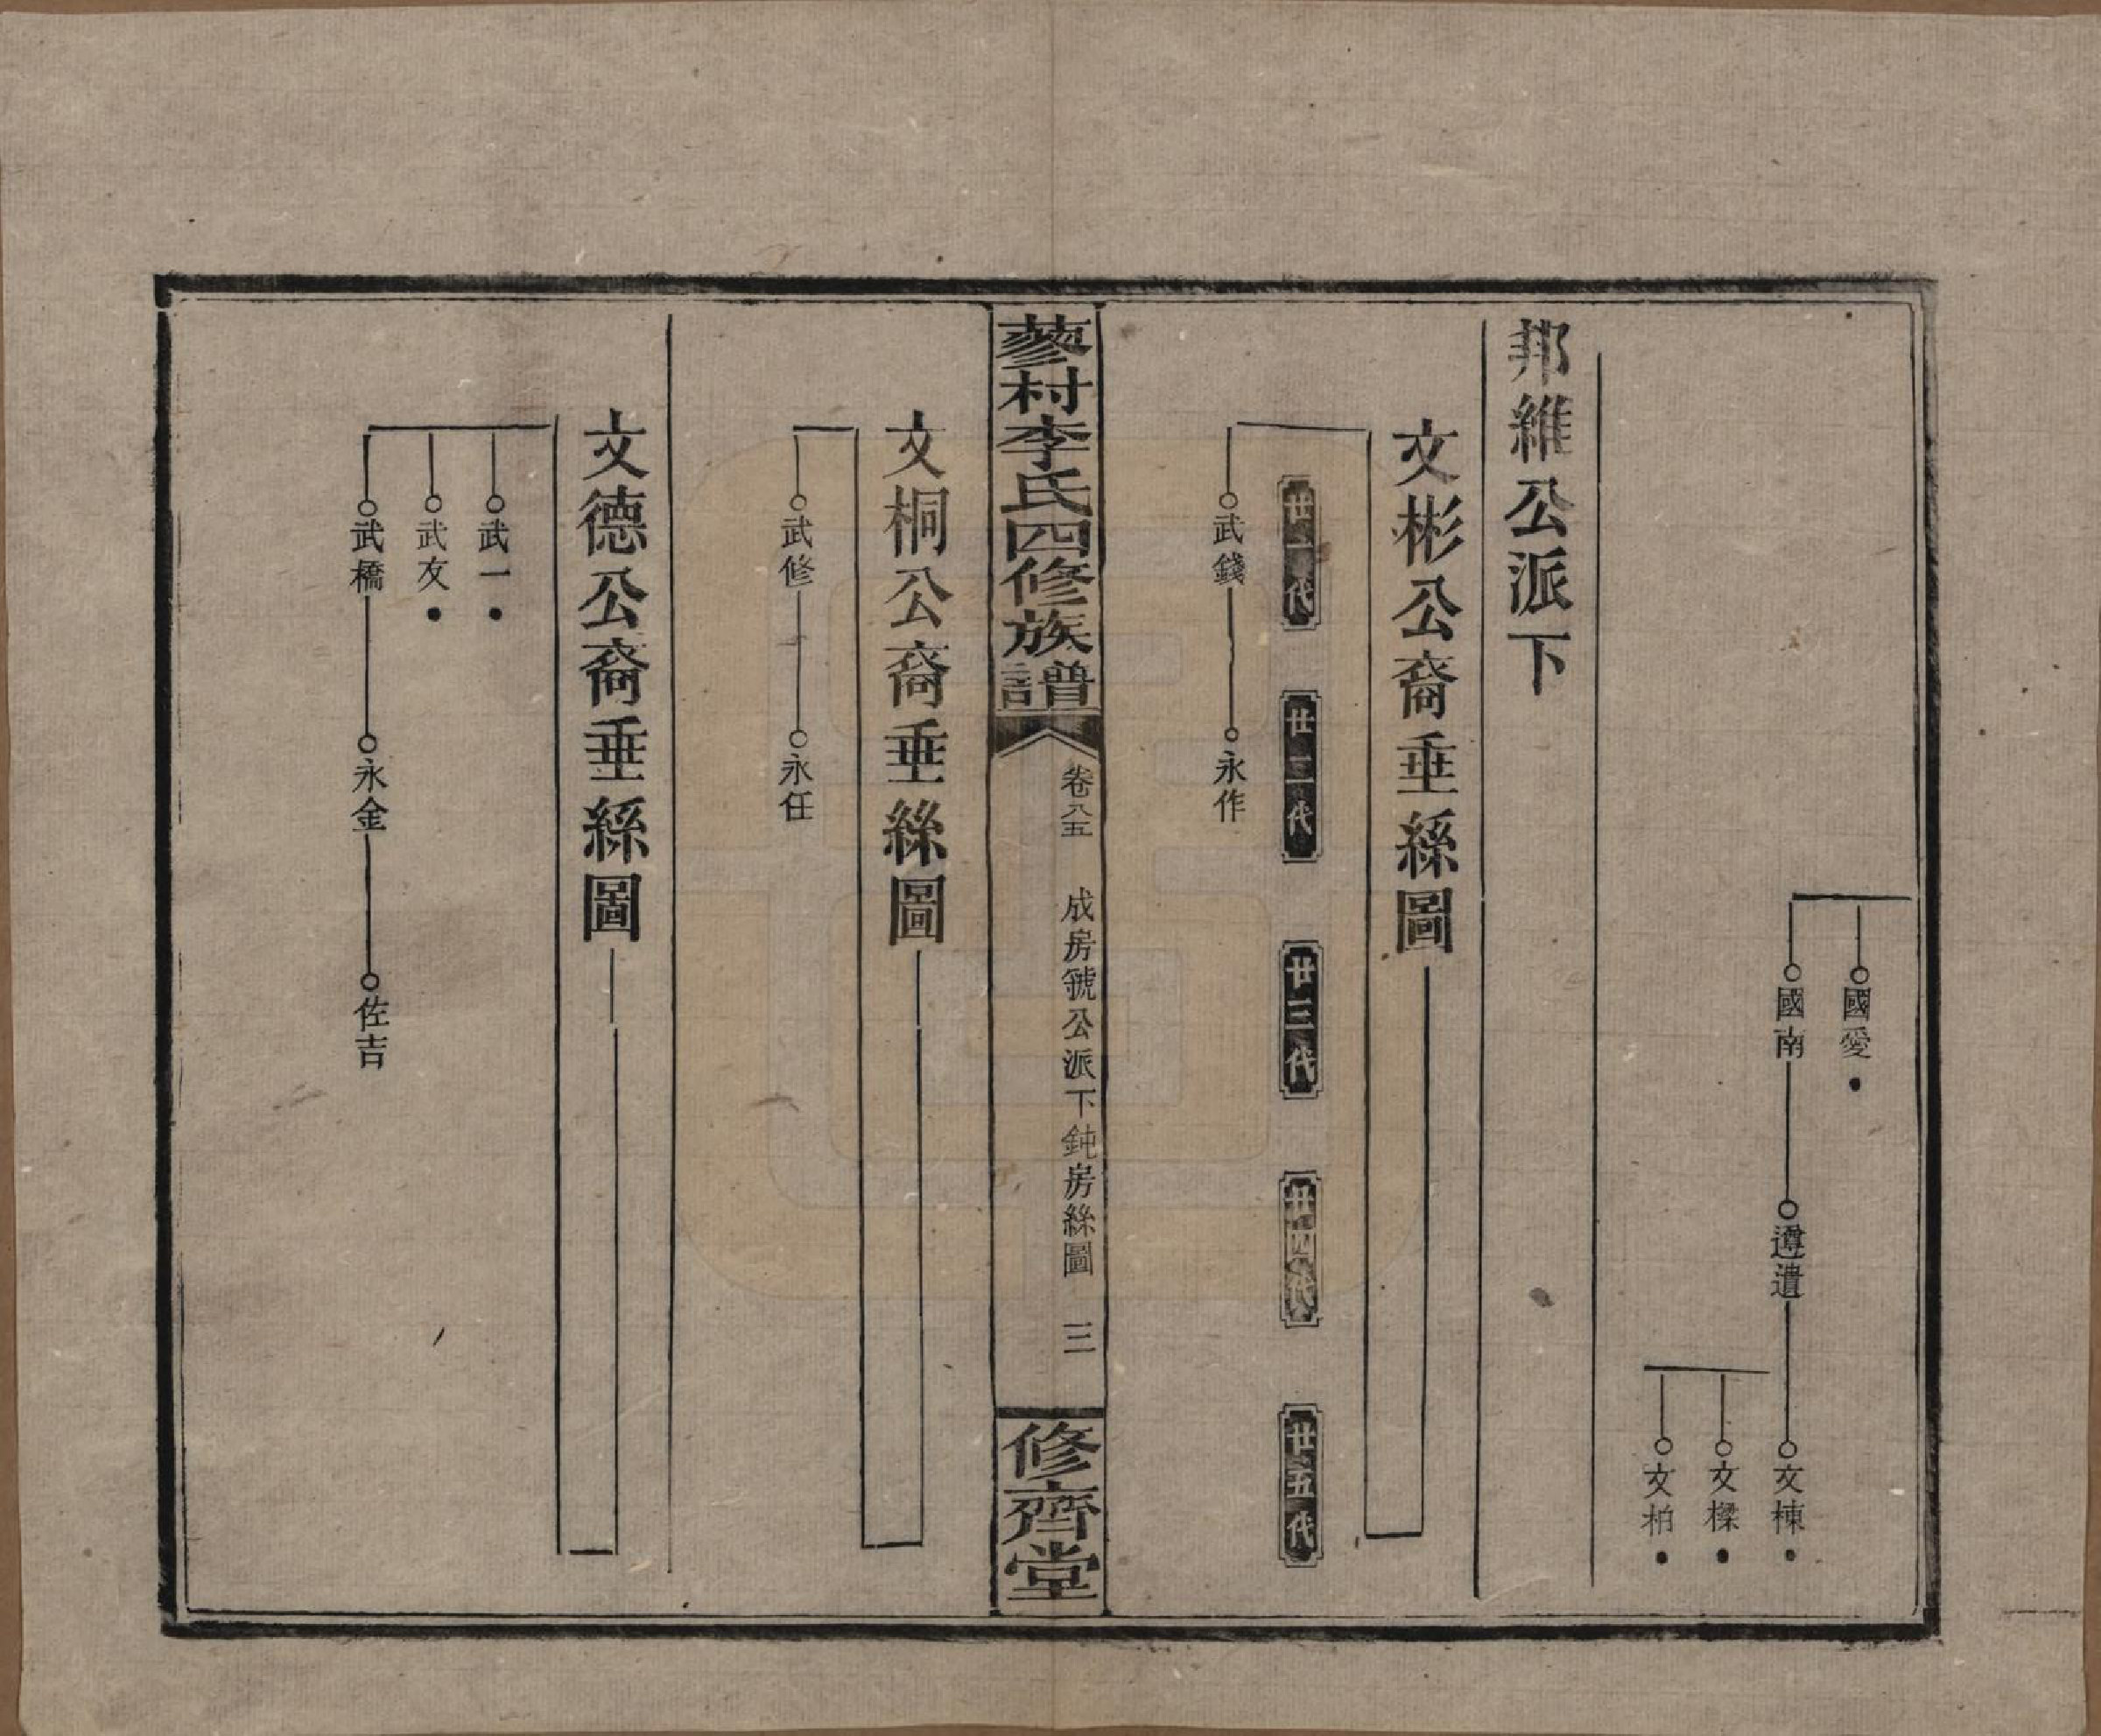 國愛
國南
遵遺
文棟
文樑
文柏
邦維公派下
文彬公裔垂絲圖
廿一代
廿二代
廿三代
廿四代
廿五代
武錢
永作
蓼村李氏四修族譜
卷八五
成房號公派下鈍房絲圖
三
修齊堂
文桐公裔垂絲圖
武修
永任
文德公裔垂絲圖
武一
武友
武橋
永金
佐吉